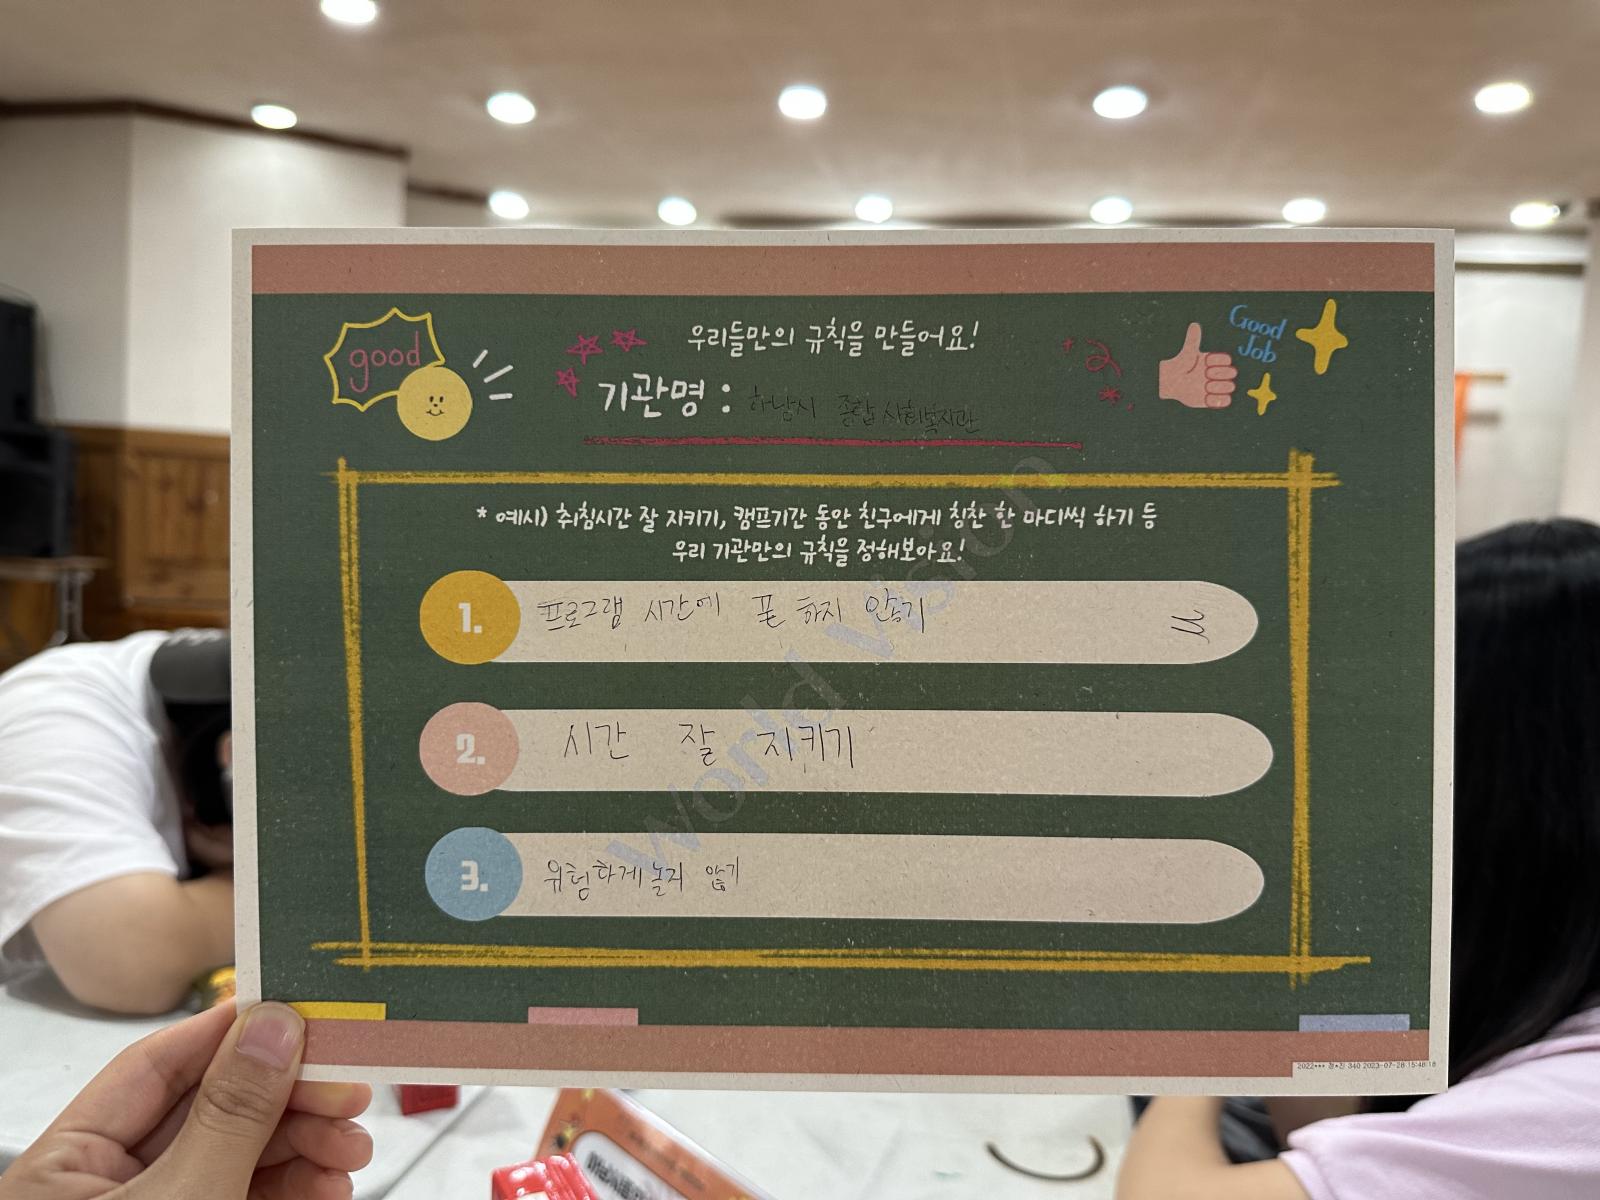 good
우리들만의 규칙을 만들어요!
Good
Job
기관명 : 하남시 종합사회복지관
* 예시) 취침시간 잘 지키기, 캠프기간 동안 친구에게 칭찬 한 마디씩 하기 등
우리 기관만의 규칙을 정해보아요!
1. 프로그램 시간에 폰 하지 않기
2. 시간 잘 지키기
3. 위험하게 놀지 않기
World Vision
2022*** 정*진 340 2023-07-28 15:48:18